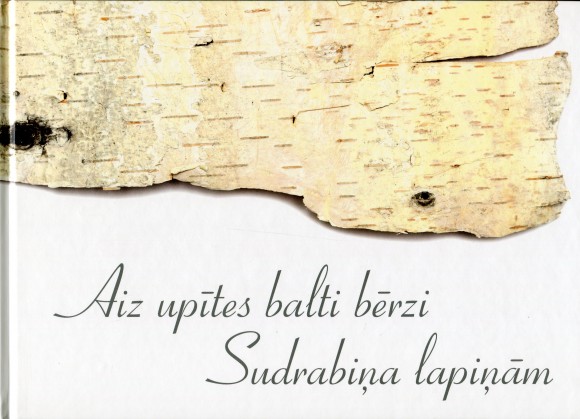 Aiz upītes balti bērzi
Sudrabiņa lapiņām